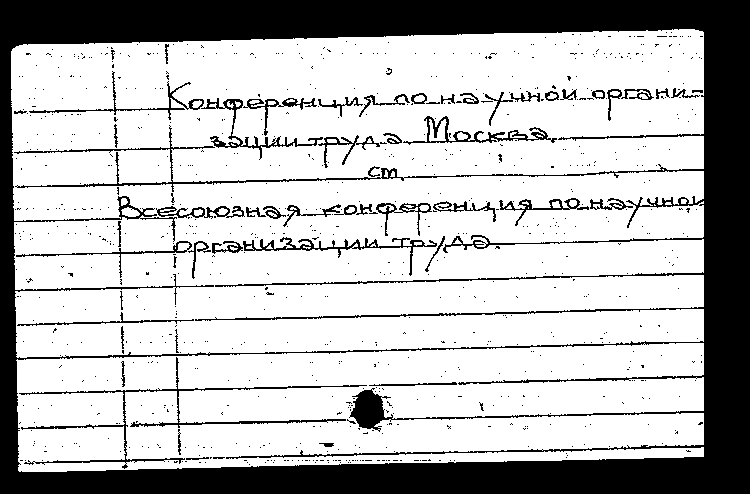 Конференция по научной органи-
зации труда. Москва.
см.
Всесоюзная конференция по научной
организации труда.